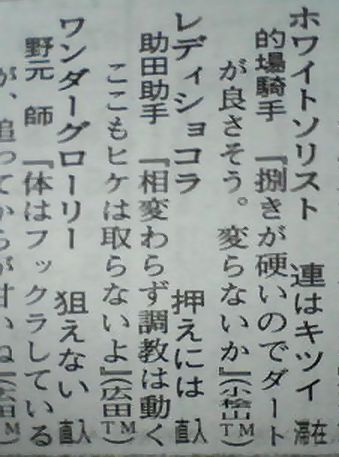 ホワイトソリスト 連はキツイ 滞在
的場騎手 『捌きが硬いのでダート
が良さそう。変らないか』(小桧山TM)
レディショコラ 押えには 直入
助田助手 『相変わらず調教は動く
ここもヒケは取らないよ』(広田TM)
ワンダーグローリー 狙えない 直入
野元 師 『体はフックラしている
が、追ってからが甘いね』(広田TM)